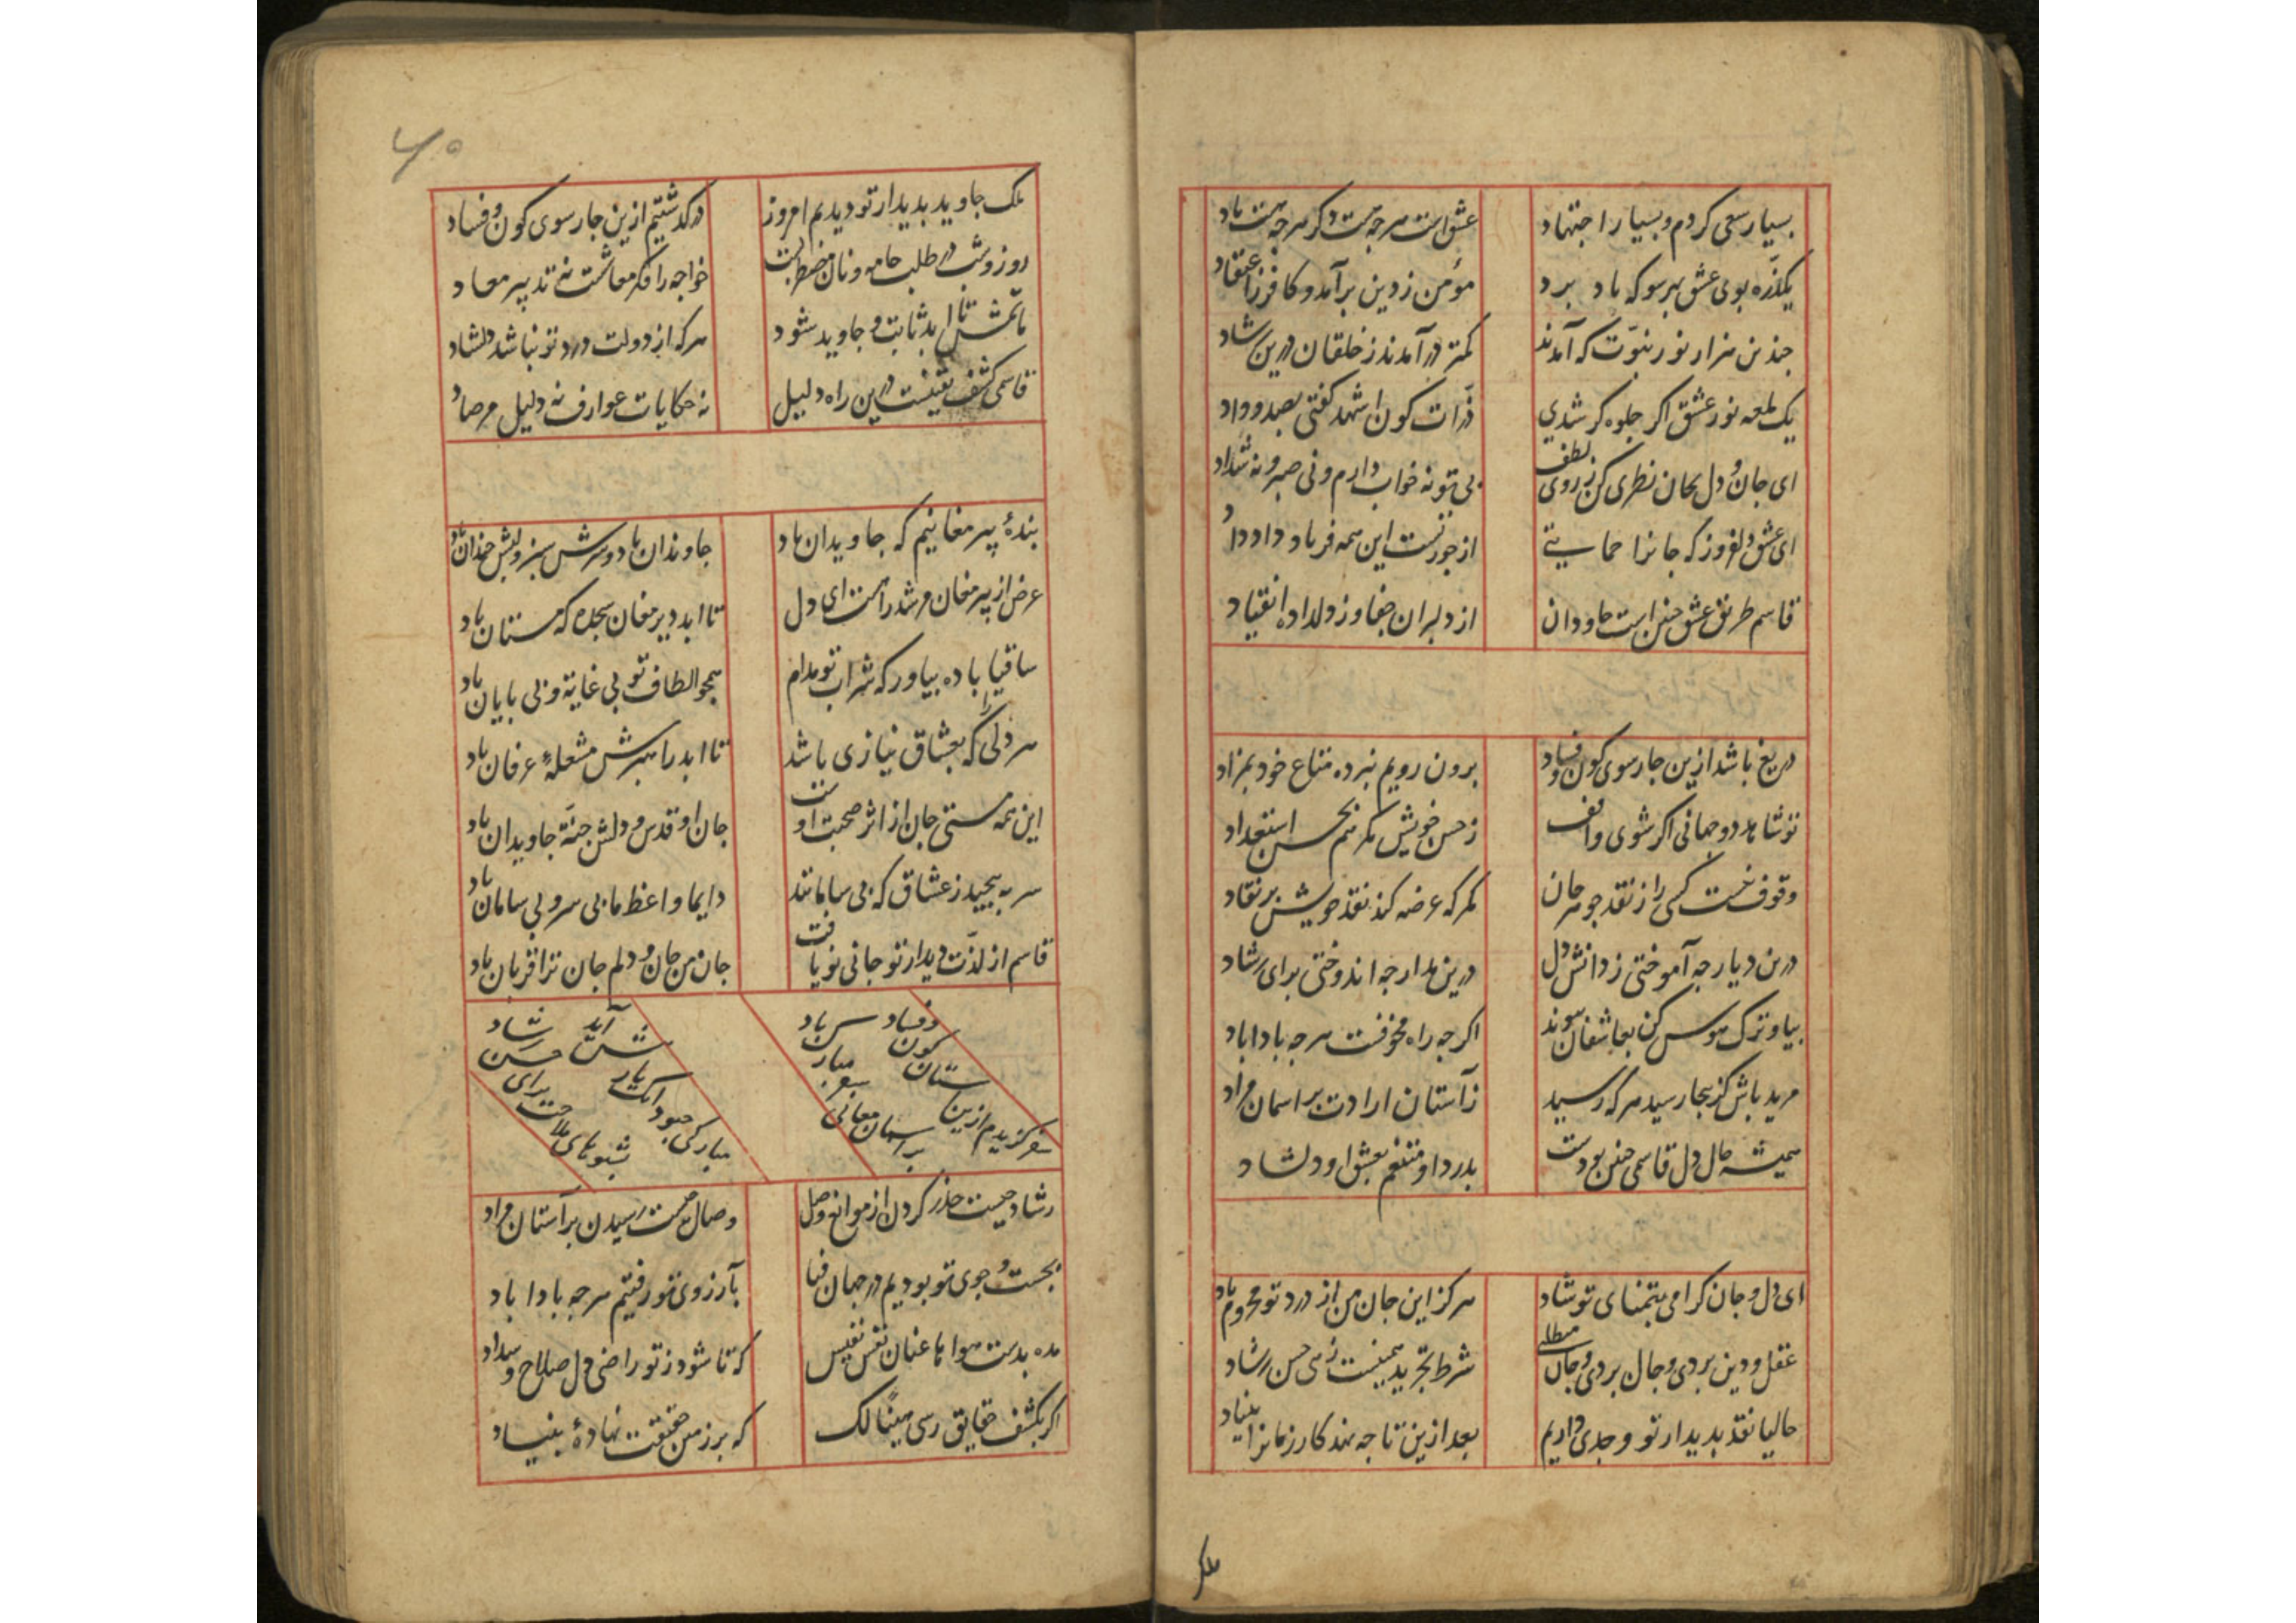 بسیار سعی کردم و بسیار اجتهاد عشق است هرچه هست دگر هرچه هست باد
یکذره بوی عشق بهر سو که باد برد مؤمن ز دین برآمد و کافر ز اعتقاد
چندین هزار نور نبوت که آمدند کمتر درآمدند خلقان درین رشاد
یک لمعه نور عشق اگر جلوه گر شدی ذرات کون اشهد گفتی بصد وداد
ای جان و دل بجان نظری کن ز روی لطف بی تو نه خواب دارم و نی صبر و نه سداد
ای عشق دلفروز که جانرا حمایتی از جور تست این همه فریاد و داد داد
قاسم طریق عشق چنین است جاودان از دلبران جفا و ز دلداده انقیاد
دریغ باشد ازین چارسوی کون و فساد برون رویم نبرده متاع خود بمزاد
تو شاهد دو جهانی اگر شوی واقف ز حسن خویش مکرم بحسن استعداد
وقوف نیست کسی را ز نقد جوهر جان مگر که عرضه کند نقد خویش بر نقاد
درین دیار چه آموختی ز دانش دل درین مدار چه اندوختی برای رشاد
بیا و ترک هوس کن بعاشقان پیوند اگرچه راه مخوفت هرچه بادا باد
مرید باش کزینجا رسید هر که رسید ز آستان ارادت بر آسمان مراد
همیشه حال دل قاسمی چنین بودست بدرد او متنعم بعشق او دلشاد
ای دل و جان گرامی بتمنای تو شاد هرگز این جان من از درد تو محروم مباد
عقل و دین بردی و جان بردی و جان می‌طلبی شرط تجرید همینست زهی حسن رشاد
حالیا نقد بدیدار تو وجدی داریم بعد ازین تا چه نهد کار زمانرا بنیاد
ملک
۴۵
ملک جاوید بدیدار تو دیدیم امروز در گذشتیم ازین چارسوی کون و فساد
روز و شب در طلب جامه و نان مضطربست خواجه را فکر معاشست نه تدبیر معاد
ماتمش تا بابد ثابت و جاوید شود هر که از دولت درد تو نباشد دلشاد
قاسمی کشف یقینست درین راه دلیل نه حکایات عوارف نه دلیل مرصاد
بندهٔ پیر مغانیم که جاویدان باد جاودان باد و سرش سبز و لبش خندان باد
غرض از پیر مغان مرشد راهست ای دل تا ابد دیر مغان سجده گه مستان باد
ساقیا باده بیاور که شراب تو مدام همچو الطاف تو بی غایة و بی پایان باد
هر دلی را که بعشاق نیازی باشد تا ابد راهبرش مشعلهٔ عرفان باد
این همه مستی جان از اثر صحبت اوست جان او قدس و دلش جنة جاویدان باد
سر بپیچید ز عشاق که بی سامانند دایما واعظ ما بی سر و بی سامان باد
قاسم از لذت دیدار تو جانی نو یافت جان من جان و دلم جان ترا قربان باد
سفر گزیدم ازین آستان کون و فساد بر آسمان معانی سفر مبارک باد
مبارکی چبود آنک یار پیش آید شبوهای ملاحت برای حسن رشاد
رشاد چیست حذر کردن از موانع وصل وصال چیست رسیدن بر آستان مراد
بجست و جوی تو بودیم در جهان فنا بآرزوی تو رفتیم هرچه بادا باد
مده بدست هوا ها عنان نفس نفیس که تا شود ز تو راضی دل صلاح و سداد
اگر بکشف حقایق رسی هنیئا لک که بر زمین حقیقت نهادهٔ بنیاد